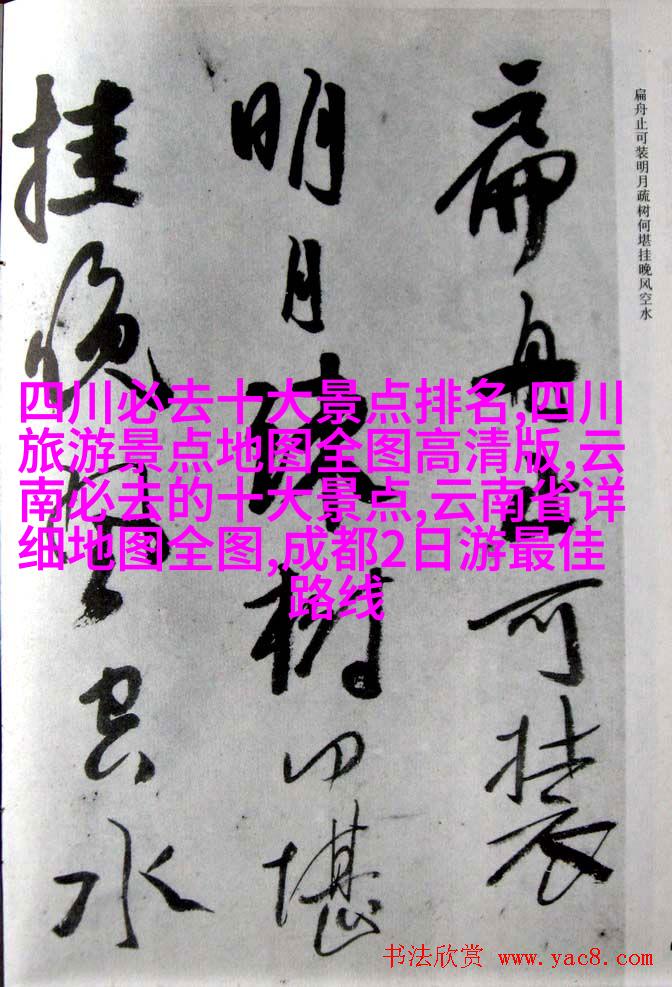 扁舟止可装
明月疏树何堪
挂晚风空水
扁舟止可装明月疏树何堪挂晚风空水
四川必去十大景点排名,四川
旅游景点地图全图高清版,云
南必去的十大景点,云南省详
细地图全图,成都2日游最佳
路线
书法欣赏 www.yac8.com